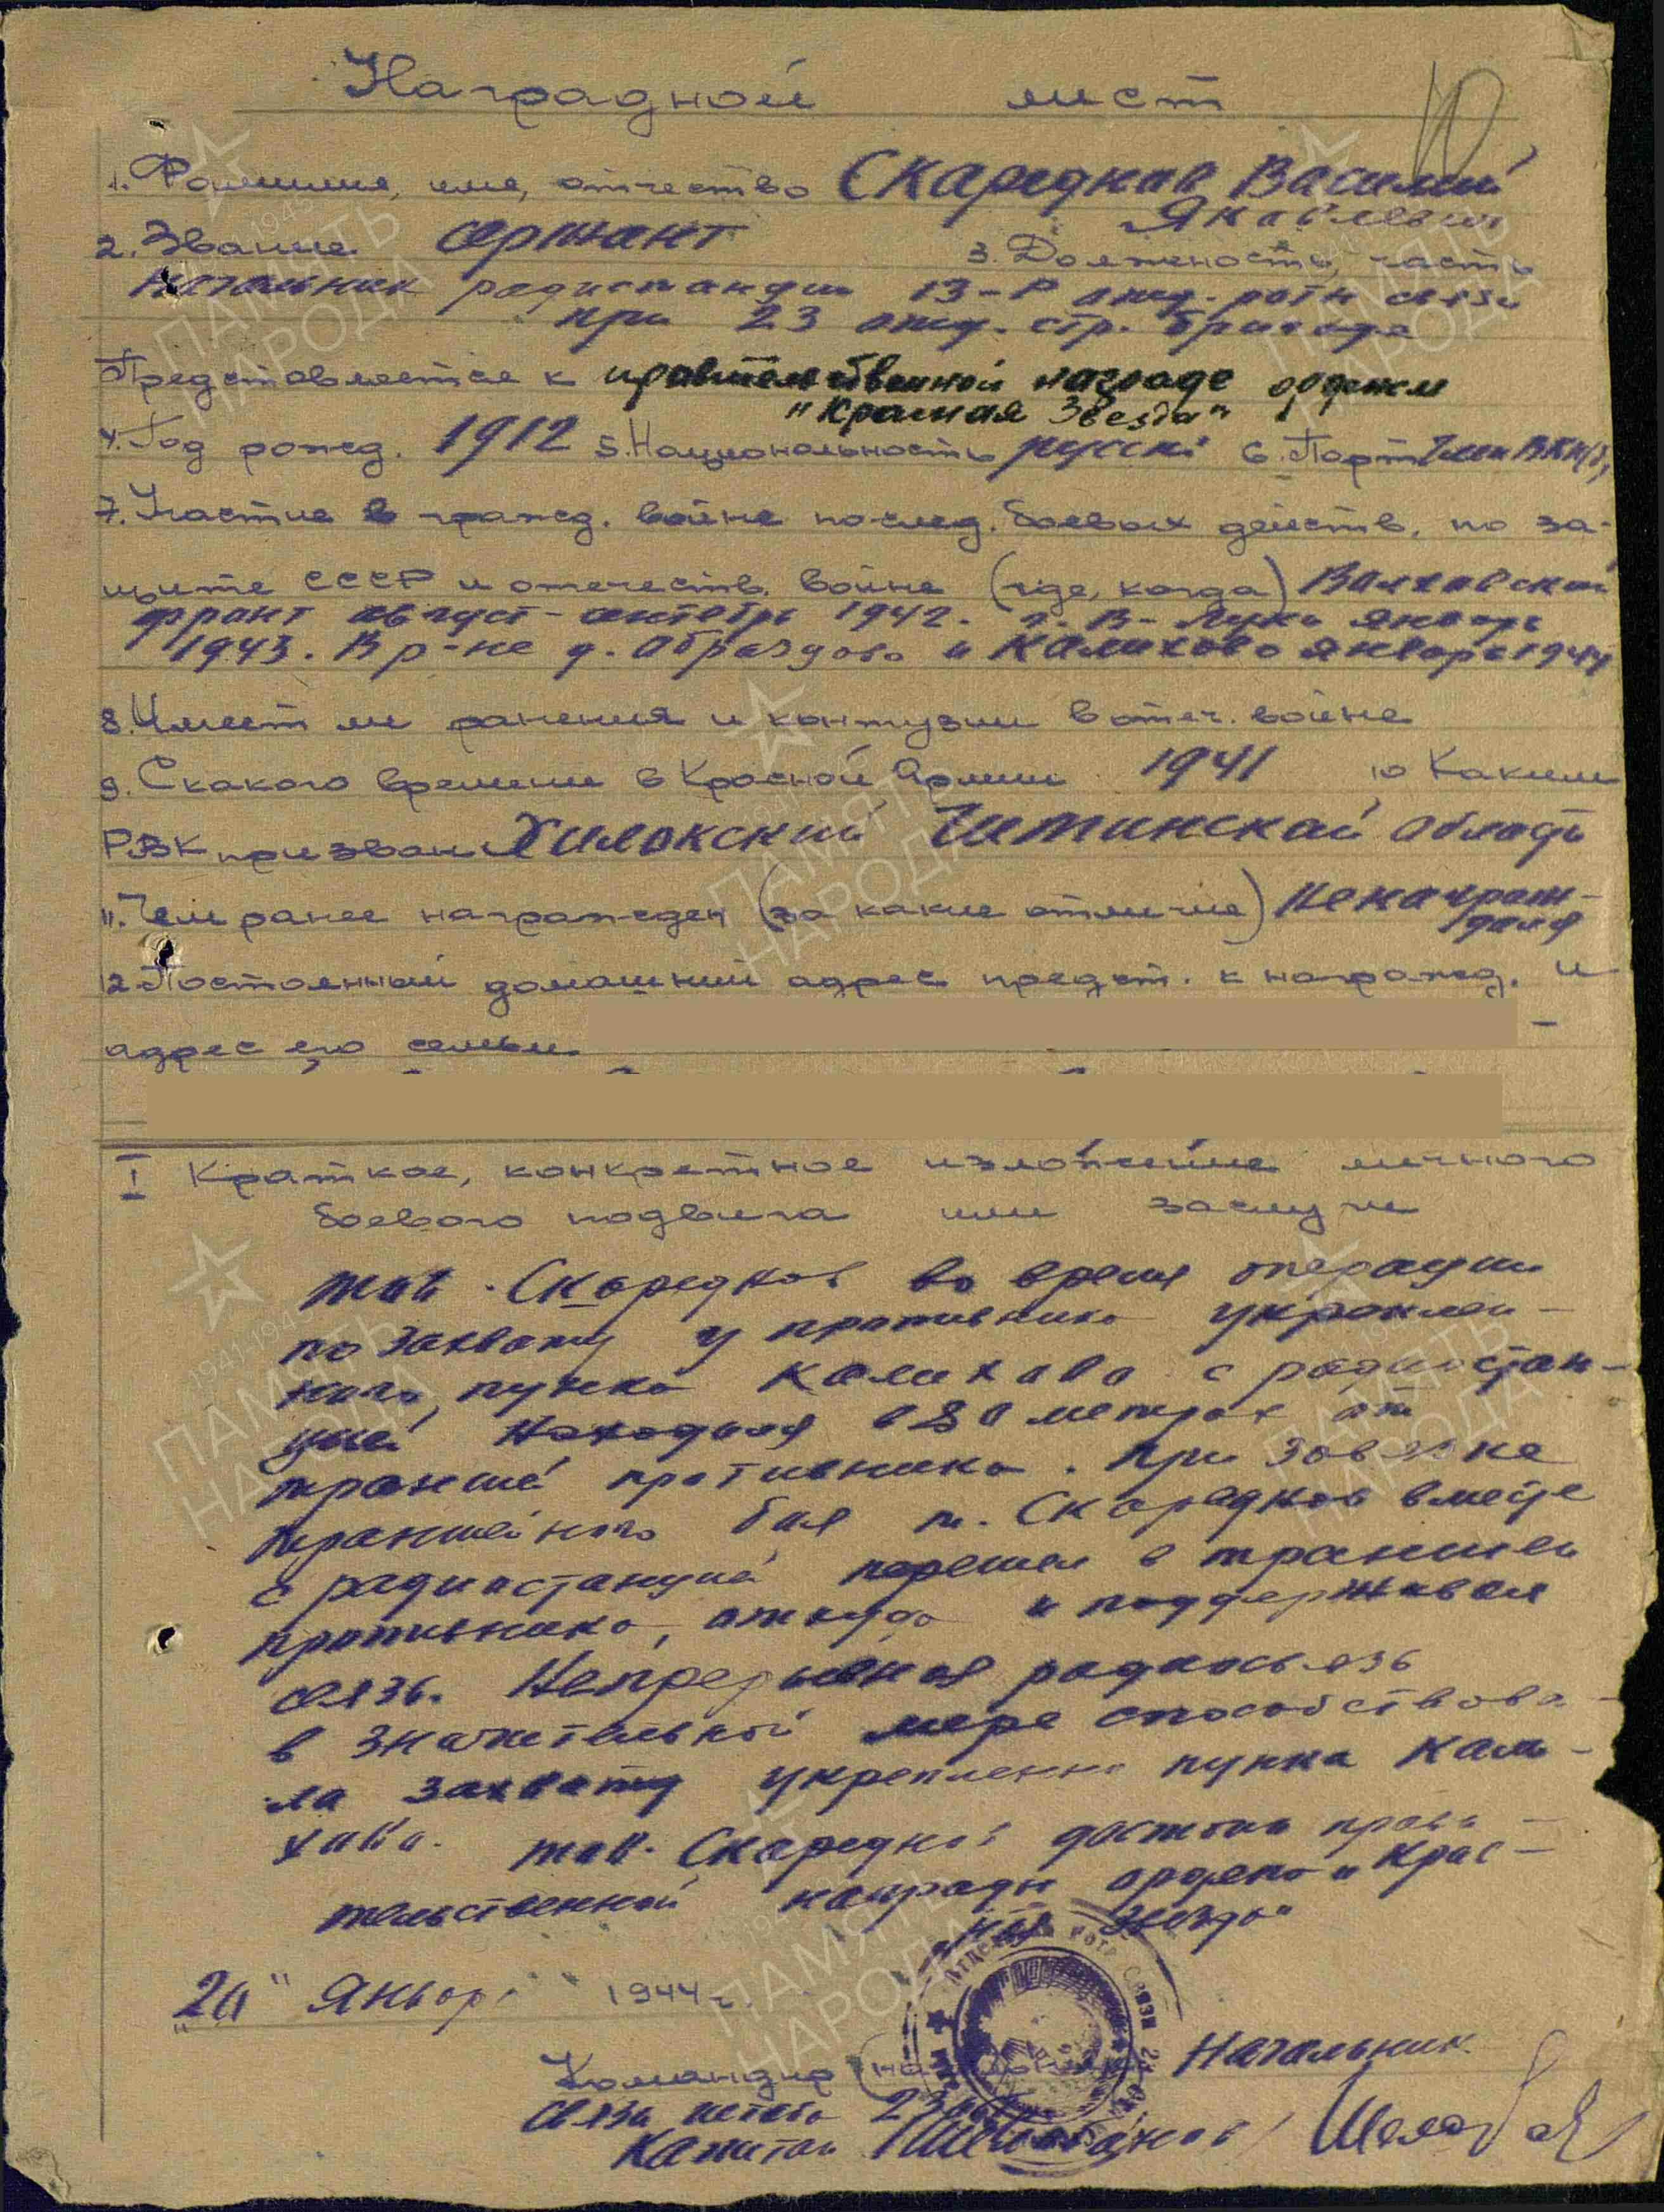 Наградной лист
1. Фамилия, имя, отчество Скареднов Василий
Яковлевич
2. Звание сержант 3. Должность, часть
Начальник радиостанции 13-Р отд. роты связи
при 23 отд. стр. бригаде
Представляется к правительственной награде орденом
"Красная Звезда"
4. Год рожд. 1912 5. Национальность русский 6. Парт. член ВКП(б)
7. Участие в гражд. войне послед. боевых действ. по за-
щите СССР и отечеств. войне (где, когда) Волховский
фронт август-сентябрь 1942. г. В-Луки январь
1943. В р-не д. Образдово и Калихово январь 1944
8. Имеет ли ранения и контузии в отеч. войне
9. С какого времени в Красной Армии 1941 10 Каким
РВК призван Хилокский Читинской область
11. Чем ранее награжден (за какие отличие) Не награж-
дался
12 Постоянный домашний адрес предст. к награжд. и
адрес его семьи
I Краткое, конкретное изложение личного
боевого подвига или заслуги
тов. Скареднов во время операции
по захвату у противника укреплен-
ного пункта Калихово с радиостан-
цией находился в 80 метрах от
траншей противника. При завязке
траншейного боя т. Скареднов вместе
с радиостанцией перешел в траншеи
противника, откуда и поддерживал
связь. Непрерывная радиосвязь
в значительной мере способствова-
ла захвату укрепленно пункта Кали-
хово. тов. Скареднов достоин прави-
тельственной награды ордено "Крас-
ная Звезда"
"20" Январь 1944 г.
Командир Начальник
связи 23
Капитан
ПАМЯТЬ
НАРОДА
1941-1945